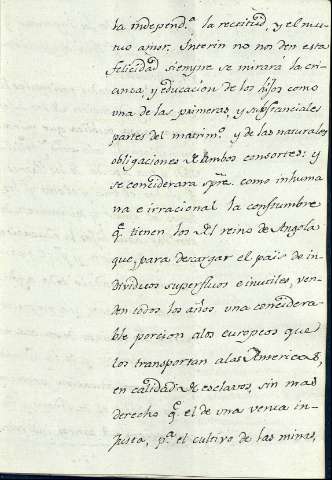 ta independ.ª la rectitud, y el mu-
tuo amor. Interin no nos den esta
felicidad siempre se mirará la cri-
anza, y educacion de los hijos como
una de las primeras, y substanciales
partes del matrim.º y de las naturales
obligaciones de ambos consortes: y
se considerara spre. como inhuma
na e irracional la constumbre
q.e tienen los del reino de Angola
que, para descargar el pais de in-
dividuos superfluos e inutiles, ven-
den todos los años una considera-
ble porcion a los europeos que
los transportan a las Americas,
en calidad de esclavos, sin mas
derecho q.e el de una venta in-
justa, p.ª el cultivo de las minas,